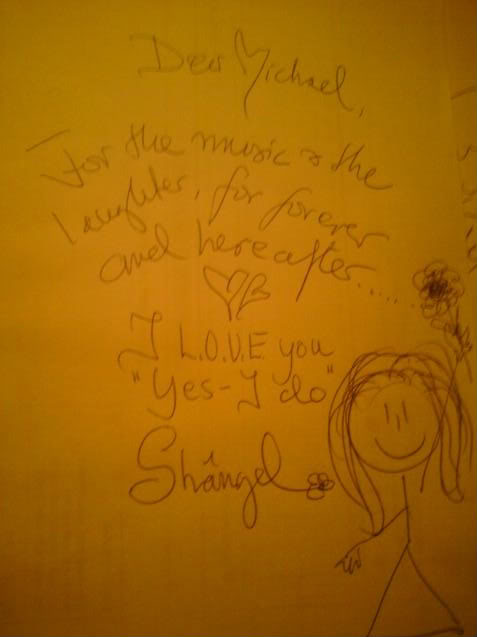 Dear Michael,
For the music & the
laughter, for forever
and hereafter......
I L.O.V.E. you
"Yes-I do"
Shângel